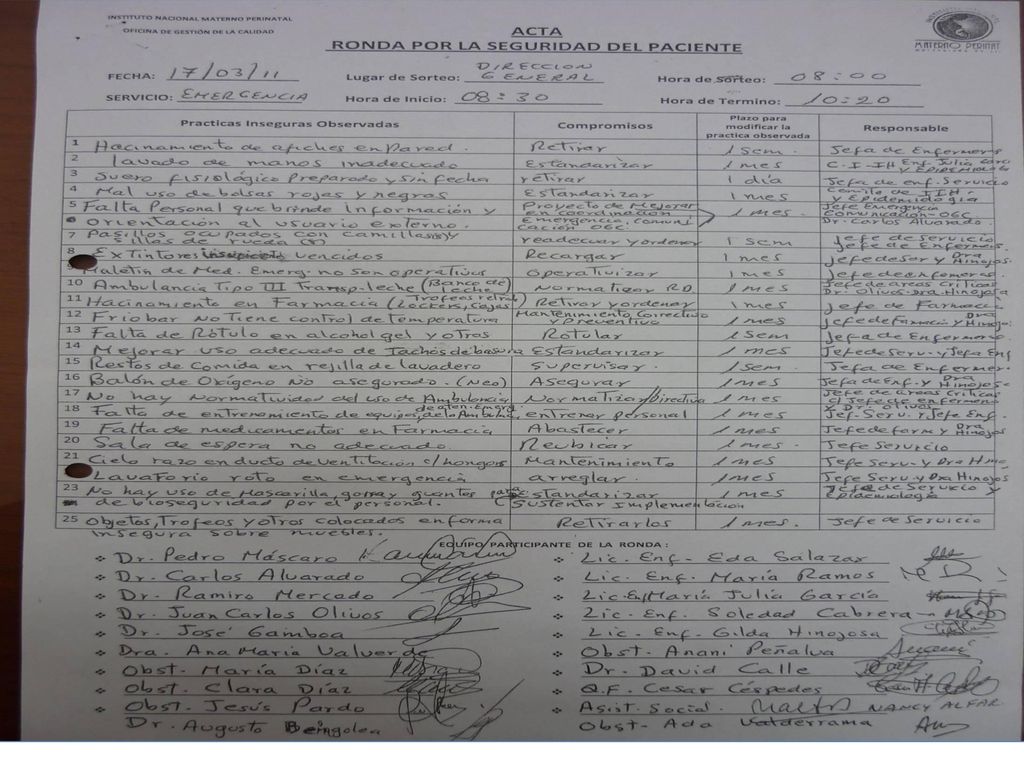 INSTITUTO NACIONAL MATERNO PERINATAL
OFICINA DE GESTIÓN DE LA CALIDAD
MATERNO PERINAT
ACTA
RONDA POR LA SEGURIDAD DEL PACIENTE
FECHA: 17/03/11 Lugar de Sorteo: DIRECCION GENERAL Hora de Sorteo: 08:00
SERVICIO: EMERGENCIA Hora de Inicio: 08:30 Hora de Termino: 10:20
Practicas Inseguras Observadas Compromisos Plazo para modificar la practica observada Responsable
1 Hacinamiento de afiches en Pared. Retirar 1 Sem. Jefa de Enfermeros
2 lavado de manos inadecuado Estandarizar 1 mes C.I-IH Enf. Julia Garci y EPIDEMIOLOG
3 Suero fisiológico Preparado y sin fecha retirar 1 día Jefa de enf. Servicio
4 Mal uso de bolsas rojas y negras Estandarizar 1 mes Comite de IIH. y Epidemiologia
5 Falta Personal que brinde Información y Proyecto de Mejorar en coordinación 1 mes. Jefe Emergencia
orientación al usuario externo. Emergencia, Comunicación OGC. Comunicación-OGC Dr. Carlos Alvarado.
7 Pasillos ocupados con camillas y sillas de rueda readecuar y ordenar 1 sem Jefe de Servicio Jefe de Enfermeros
8 Extintores vencidos Recargar 1 mes jefe de Ser y Dra Hinojos.
Maletin de Med. Emerg. no son operativos Operativizar 1 mes Jefe de enfermeros.
10 Ambulancia Tipo III Transp-leche (Banco de leche) Normatizar RD 1 mes Jefe de áreas Críticas Dr. Olivos-Dra. Hinojosa
11 Hacinamiento en Farmacia (Lockers, Cajas) Retirar y ordenar 1 mes Jefe de Farmacia
12 Friobar No Tiene control de temperatura Mantenimiento Correctivo y Preventivo 1 mes Jefe de Farmacia y Dra Hinojo
13 Falta de Rótulo en alcohol gel y otros Rotular 1 Sem Jefa de Enfermero
14 Mejorar uso adecuado de Tachos de basura Estandarizar 1 mes Jefe de Serv. y Jefa Enf
15 Restos de Comida en rejilla de lavadero supervisar. 1 Sem. Jefa de Enfermer.
16 Balón de Oxígeno No asegurado. (Neo) Asegurar 1 mes Jefa de Enf. y Dra Hinojos.
17 No hay Normatividad del uso de Ambulancia Normatizar/Directiva 1 mes Jefe de áreas criticas
18 Falta de entrenamiento de equipos de la Ambulan. entrenar personal 1 mes Jef-Serv. y Jefe Enf.
19 Falta de medicamentos en Farmacia Abastecer 1 mes Jefe de farm y Dra Hinojos
20 Sala de espera no adecuado Reubicar 1 mes. Jefe Servicio
21 Cielo razo en ducto de ventilación c/hongos Mantenimiento 1 mes Jefe Serv- y Dra Hino.
Lavatorio roto en emergencia arreglar. 1 mes Jefe Serv- y Dra Hinojos
23 No hay uso de Mascarilla, gorra y guantes para Estandarizar 1 mes Jefe de Servicio y
de bioseguridad por el personal. (Sustentar Implementación Epidemiologia
25 Objetos, Trofeos y otros colocados en forma Retirarlos 1 mes. Jefe de Servicio
insegura sobre muebles.
EQUIPO PARTICIPANTE DE LA RONDA:
Dr. Pedro Máscaro Lic. Enf- Eda Salazar
Dr. Carlos Alvarado Lic. Enf. María Ramos
Dr. Ramiro Mercado Lic-Enf María Julia García
Dr. Juan Carlos Olivos Lic. Enf. Soledad Cabrera
Dr. José Gamboa Lic. Enf. Gilda Hinojosa
Dra. Ana Maria Valverde Obst. Ananí Peñalva
Obst. María Díaz Dr. David Calle
Obst. Clara Díaz Q.F. Cesar Céspedes
Obst. Jesús Pardo Asist. Social. NANCY ALFAR
Dr. Augusto Beingolea Obst- Ada Valderrama